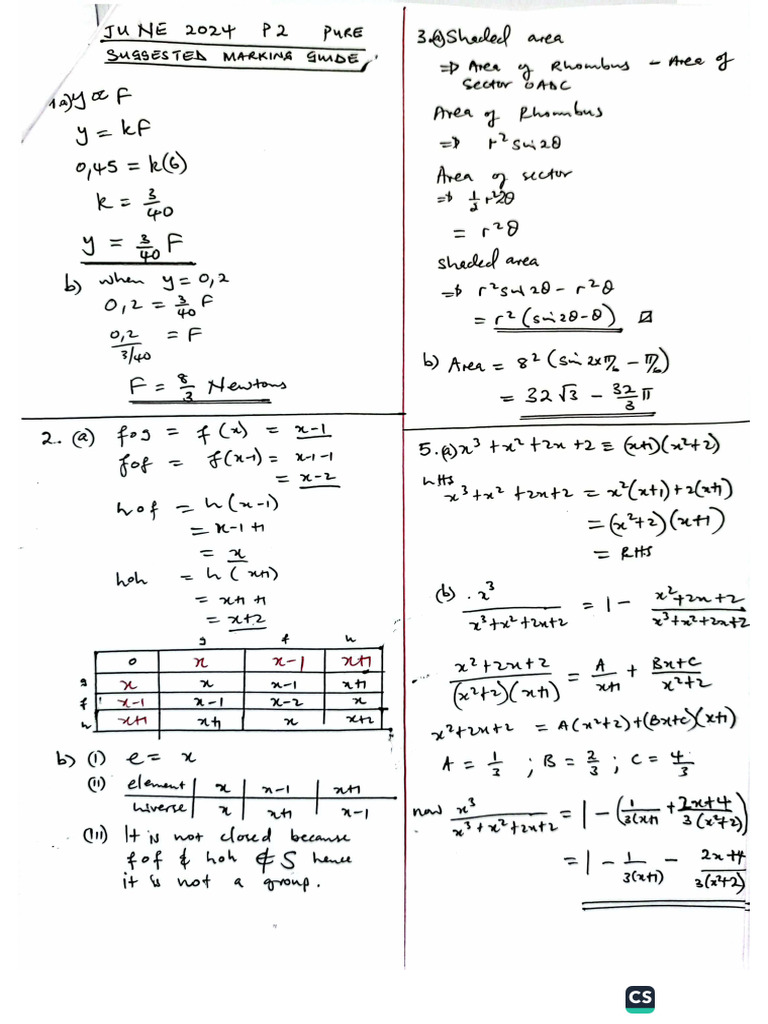 JUNE 2024 P2 PURE
SUGGESTED MARKING GUIDE
1a) y ∝ F
y = kF
0,45 = k(6)
k = 3/40
y = 3/40 F
b) when y = 0,2
0,2 = 3/40 F
0,2 / 3/40 = F
F = 8/3 Newtons
2. (a) fog = f(x) = x-1
fof = f(x-1) = x-1-1
= x-2
hof = h(x-1)
= x-1+1
= x
hoh = h(x+1)
= x+1+1
= x+2
g f h
o x x-1 x+1
g x x x-1 x+1
f x-1 x-1 x-2 x
h x+1 x+1 x x+2
b) (i) e = x
(ii) element | x | x-1 | x+1
inverse | x | x+1 | x-1
(iii) It is not closed because
fof & hoh ∉ S hence
it is not a group.
3.a) Shaded area
⇒ Area of Rhombus - Area of
Sector OADC
Area of Rhombus
⇒ r² sin2θ
Area of sector
⇒ 1/2 r²2θ
= r²θ
shaded area
⇒ r² sin2θ - r²θ
= r²(sin2θ-θ)
b) Area = 8²(sin2xπ/6 - π/6)
= 32√3 - 32/3 π
5.a) x³+x²+2x+2 ≡ (x+1)(x²+2)
LHS
x³+x²+2x+2 = x²(x+1)+2(x+1)
= (x²+2)(x+1)
= RHS
(b) x³/(x³+x²+2x+2) = 1 - (x²+2x+2)/(x³+x²+2x+2)
(x²+2x+2)/((x²+2)(x+1)) = A/(x+1) + (Bx+C)/(x²+2)
x²+2x+2 = A(x²+2)+(Bx+C)(x+1)
A = 1/3 ; B = 2/3 ; C = 4/3
now x³/(x³+x²+2x+2) = 1 - (1/(3(x+1) + (2x+4)/(3(x²+2)))
= 1 - 1/(3(x+1)) - (2x+4)/(3(x²+2))
CS